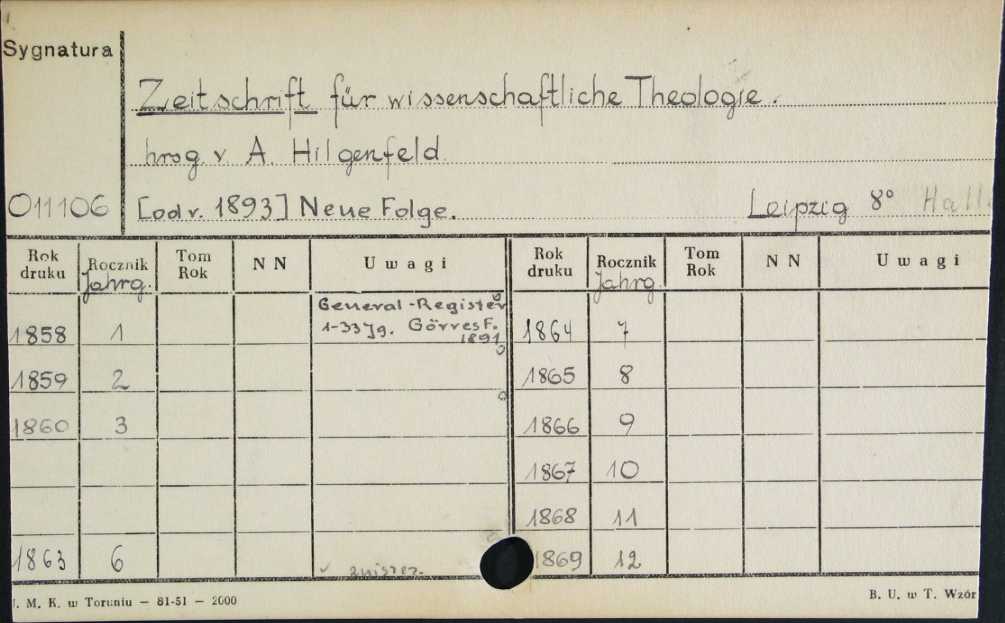 Sygnatura
Zeitschrift für wissenschaftliche Theologie.
hrsg. v. A. Hilgenfeld
011106 [od r. 1893] Neue Folge. Leipzig 8°
Rok druku Rocznik Jahrg. Tom Rok N N Uwagi Rok druku Rocznik Jahrg. Tom Rok N N Uwagi
General-Register
1858 1 1-33 Jg. Görres F. 1891 1864 7
1859 2 1865 8
1860 3 1866 9
1867 10
1868 11
1863 6 1869 12
. M. K. w Toruniu — 81-51 — 2000 B. U. w T. Wzór